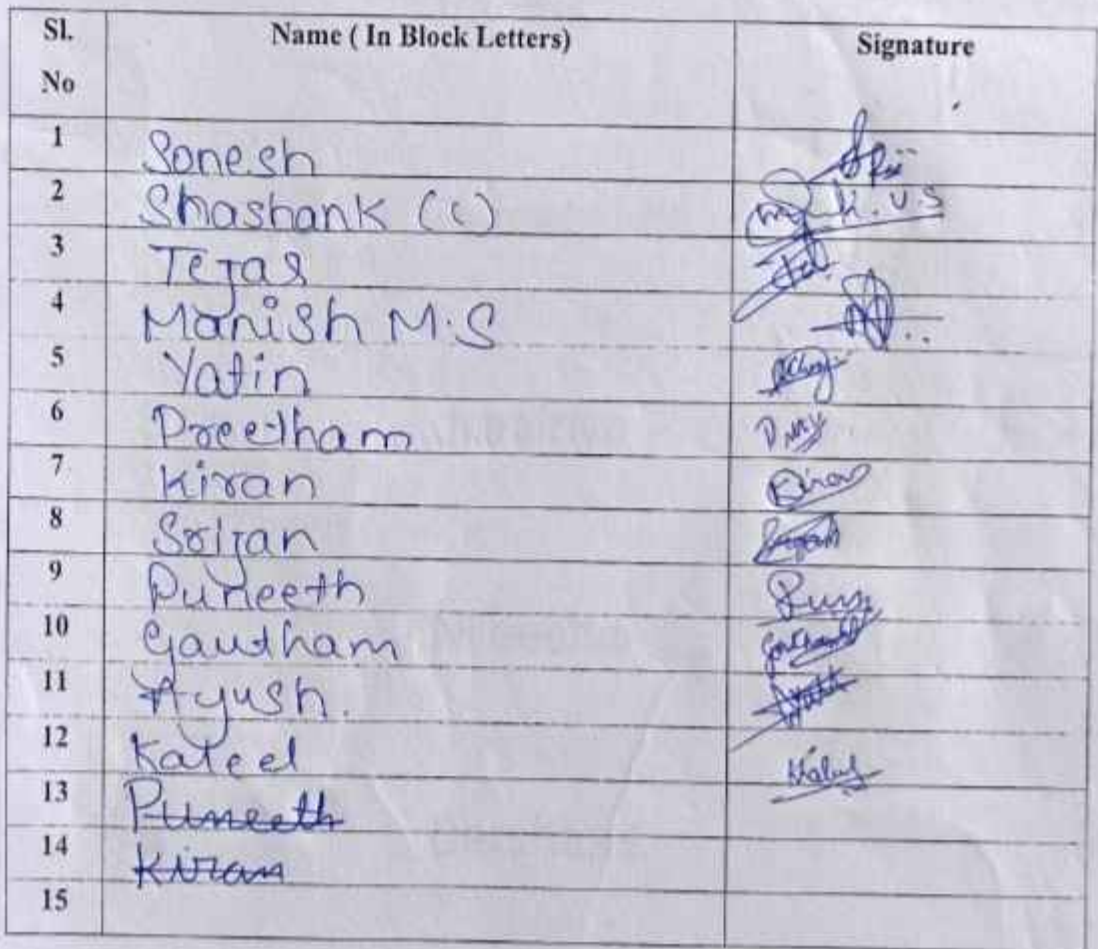 Sl. No Name ( In Block Letters) Signature
1 Sonesh
2 Shashank (c) K.V.S
3 Tejas
4 Manish M.S
5 Yatin
6 Preetham
7 Kiran Kiran
8 Srijan
9 Puneeth
10 Gautham
11 Ayush.
12 Kateel
13 Puneeth
14 Kiran
15